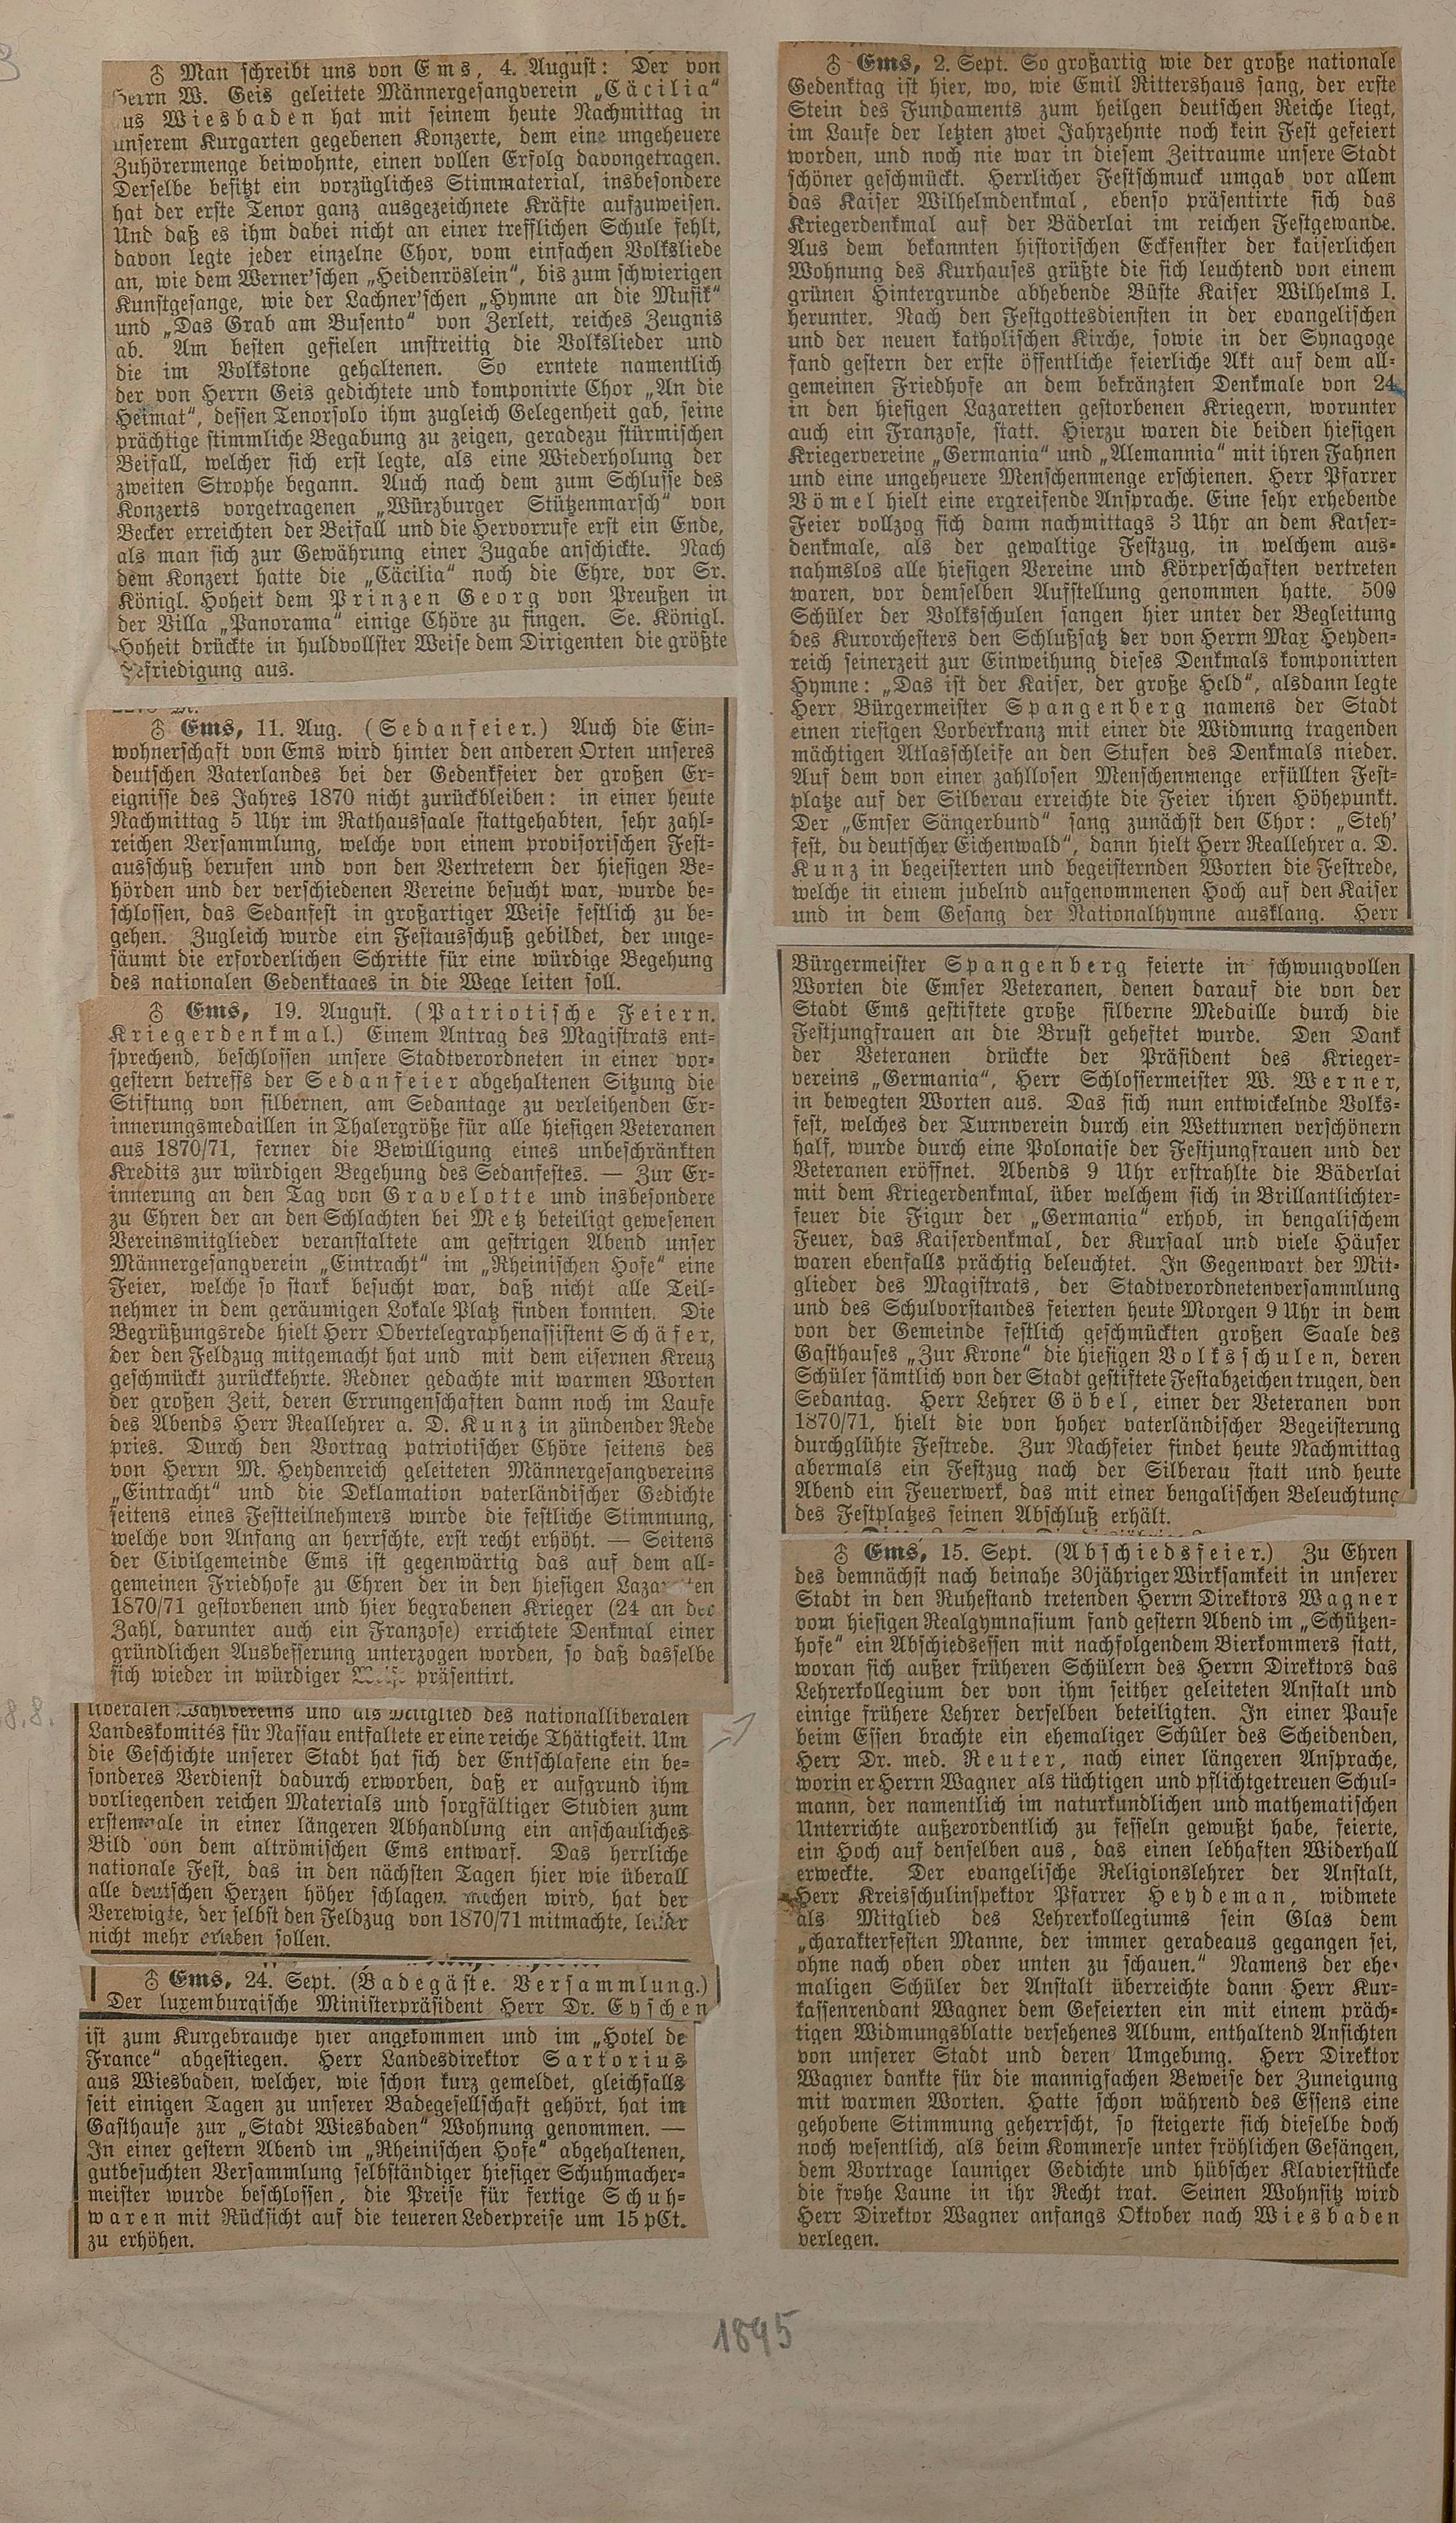 ♁ Man schreibt uns von Ems, 4. August: Der von
Herrn W. Geis geleitete Männergesangverein „Cäcilia“
us Wiesbaden hat mit seinem heute Nachmittag in
unserem Kurgarten gegebenen Konzerte, dem eine ungeheuere
Zuhörermenge beiwohnte, einen vollen Erfolg davongetragen.
Derselbe besitzt ein vorzügliches Stimmaterial, insbesondere
hat der erste Tenor ganz ausgezeichnete Kräfte aufzuweisen.
Und daß es ihm dabei nicht an einer trefflichen Schule fehlt,
davon legte jeder einzelne Chor, vom einfachen Volksliede
an, wie dem Werner'schen „Heidenröslein“, bis zum schwierigen
Kunstgesange, wie der Lachner'schen „Hymne an die Musik“
und „Das Grab am Busento“ von Zerlett, reiches Zeugnis
ab. Am besten gefielen unstreitig die Volkslieder und
die im Volkstone gehaltenen. So erntete namentlich
der von Herrn Geis gedichtete und komponirte Chor „An die
Heimat“, dessen Tenorsolo ihm zugleich Gelegenheit gab, seine
prächtige stimmliche Begabung zu zeigen, geradezu stürmischen
Beifall, welcher sich erst legte, als eine Wiederholung der
zweiten Strophe begann. Auch nach dem zum Schlusse des
Konzerts vorgetragenen „Würzburger Stützenmarsch“ von
Becker erreichten der Beifall und die Hervorrufe erst ein Ende,
als man sich zur Gewährung einer Zugabe anschickte. Nach
dem Konzert hatte die „Cäcilia“ noch die Ehre, vor Sr.
Königl. Hoheit dem Prinzen Georg von Preußen in
der Villa „Panorama“ einige Chöre zu singen. Se. Königl.
Hoheit drückte in huldvollster Weise dem Dirigenten die größte
Befriedigung aus.
♁ Ems, 11. Aug. (Sedanfeier.) Auch die Ein-
wohnerschaft von Ems wird hinter den anderen Orten unseres
deutschen Vaterlandes bei der Gedenkfeier der großen Er-
eignisse des Jahres 1870 nicht zurückbleiben: in einer heute
Nachmittag 5 Uhr im Rathaussaale stattgehabten, sehr zahl-
reichen Versammlung, welche von einem provisorischen Fest-
ausschuß berufen und von den Vertretern der hiesigen Be-
hörden und der verschiedenen Vereine besucht war, wurde be-
schlossen, das Sedanfest in großartiger Weise festlich zu be-
gehen. Zugleich wurde ein Festausschuß gebildet, der unge-
säumt die erforderlichen Schritte für eine würdige Begehung
des nationalen Gedenktages in die Wege leiten soll.
♁ Ems, 19. August. (Patriotische Feiern.
Kriegerdenkmal.) Einem Antrag des Magistrats ent-
sprechend, beschlossen unsere Stadtverordneten in einer vor-
gestern betreffs der Sedanfeier abgehaltenen Sitzung die
Stiftung von silbernen, am Sedantage zu verleihenden Er-
innerungsmedaillen in Thalergröße für alle hiesigen Veteranen
aus 1870/71, ferner die Bewilligung eines unbeschränkten
Kredits zur würdigen Begehung des Sedanfestes. — Zur Er-
innerung an den Tag von Gravelotte und insbesondere
zu Ehren der an den Schlachten bei Metz beteiligt gewesenen
Vereinsmitglieder veranstaltete am gestrigen Abend unser
Männergesangverein „Eintracht“ im „Rheinischen Hofe“ eine
Feier, welche so stark besucht war, daß nicht alle Teil-
nehmer in dem geräumigen Lokale Platz finden konnten. Die
Begrüßungsrede hielt Herr Obertelegraphenassistent Schäfer,
der den Feldzug mitgemacht hat und mit dem eisernen Kreuz
geschmückt zurückkehrte. Redner gedachte mit warmen Worten
der großen Zeit, deren Errungenschaften dann noch im Laufe
des Abends Herr Reallehrer a. D. Kunz in zündender Rede
pries. Durch den Vortrag patriotischer Chöre seitens des
von Herrn M. Heydenreich geleiteten Männergesangvereins
„Eintracht“ und die Deklamation vaterländischer Gedichte
seitens eines Festteilnehmers wurde die festliche Stimmung,
welche von Anfang an herrschte, erst recht erhöht. — Seitens
der Civilgemeinde Ems ist gegenwärtig das auf dem all-
gemeinen Friedhofe zu Ehren der in den hiesigen Laza en
1870/71 gestorbenen und hier begrabenen Krieger (24 an der
Zahl, darunter auch ein Franzose) errichtete Denkmal einer
gründlichen Ausbesserung unterzogen worden, so daß dasselbe
sich wieder in würdiger Weise präsentirt.
8.8.
liberalen Wahlvereins und als Mitglied des nationalliberalen
Landeskomités für Nassau entfaltete er eine reiche Thätigkeit. Um
die Geschichte unserer Stadt hat sich der Entschlafene ein be-
sonderes Verdienst dadurch erworben, daß er aufgrund ihm
vorliegenden reichen Materials und sorgfältiger Studien zum
erstenmale in einer längeren Abhandlung ein anschauliches
Bild von dem altrömischen Ems entwarf. Das herrliche
nationale Fest, das in den nächsten Tagen hier wie überall
alle deutschen Herzen höher schlagen machen wird, hat der
Verewigte, der selbst den Feldzug von 1870/71 mitmachte, leider
nicht mehr erleben sollen.
♁ Ems, 24. Sept. (Badegäste. Versammlung.)
Der luxemburgische Ministerpräsident Herr Dr. Eyschen
ist zum Kurgebrauche hier angekommen und im „Hotel de
France“ abgestiegen. Herr Landesdirektor Sartorius
aus Wiesbaden, welcher, wie schon kurz gemeldet, gleichfalls
seit einigen Tagen zu unserer Badegesellschaft gehört, hat im
Gasthause zur „Stadt Wiesbaden“ Wohnung genommen. —
In einer gestern Abend im „Rheinischen Hofe“ abgehaltenen,
gutbesuchten Versammlung selbständiger hiesiger Schuhmacher-
meister wurde beschlossen, die Preise für fertige Schuh-
waren mit Rücksicht auf die teueren Lederpreise um 15 pCt.
zu erhöhen.
♁ Ems, 2. Sept. So großartig wie der große nationale
Gedenktag ist hier, wo, wie Emil Rittershaus sang, der erste
Stein des Fundaments zum heilgen deutschen Reiche liegt,
im Laufe der letzten zwei Jahrzehnte noch kein Fest gefeiert
worden, und noch nie war in diesem Zeitraume unsere Stadt
schöner geschmückt. Herrlicher Festschmuck umgab vor allem
das Kaiser Wilhelmdenkmal, ebenso präsentirte sich das
Kriegerdenkmal auf der Bäderlai im reichen Festgewande.
Aus dem bekannten historischen Eckfenster der kaiserlichen
Wohnung des Kurhauses grüßte die sich leuchtend von einem
grünen Hintergrunde abhebende Büste Kaiser Wilhelms I.
herunter. Nach den Festgottesdiensten in der evangelischen
und der neuen katholischen Kirche, sowie in der Synagoge
fand gestern der erste öffentliche feierliche Akt auf dem all-
gemeinen Friedhofe an dem bekränzten Denkmale von 24
in den hiesigen Lazaretten gestorbenen Kriegern, worunter
auch ein Franzose, statt. Hierzu waren die beiden hiesigen
Kriegervereine „Germania“ und „Alemannia“ mit ihren Fahnen
und eine ungeheuere Menschenmenge erschienen. Herr Pfarrer
Vömel hielt eine ergreifende Ansprache. Eine sehr erhebende
Feier vollzog sich dann nachmittags 3 Uhr an dem Kaiser-
denkmale, als der gewaltige Festzug, in welchem aus-
nahmslos alle hiesigen Vereine und Körperschaften vertreten
waren, vor demselben Aufstellung genommen hatte. 500
Schüler der Volksschulen sangen hier unter der Begleitung
des Kurorchesters den Schlußsatz der von Herrn Max Heyden-
reich seinerzeit zur Einweihung dieses Denkmals komponirten
Hymne: „Das ist der Kaiser, der große Held“, alsdann legte
Herr Bürgermeister Spangenberg namens der Stadt
einen riesigen Lorberkranz mit einer die Widmung tragenden
mächtigen Atlasschleife an den Stufen des Denkmals nieder.
Auf dem von einer zahllosen Menschenmenge erfüllten Fest-
platze auf der Silberau erreichte die Feier ihren Höhepunkt.
Der „Emser Sängerbund“ sang zunächst den Chor: „Steh'
fest, du deutscher Eichenwald“, dann hielt Herr Reallehrer a. D.
Kunz in begeisterten und begeisternden Worten die Festrede,
welche in einem jubelnd aufgenommenen Hoch auf den Kaiser
und in dem Gesang der Nationalhymne ausklang. Herr
Bürgermeister Spangenberg feierte in schwungvollen
Worten die Emser Veteranen, denen darauf die von der
Stadt Ems gestiftete große silberne Medaille durch die
Festjungfrauen an die Brust geheftet wurde. Den Dank
der Veteranen drückte der Präsident des Krieger-
vereins „Germania“, Herr Schlossermeister W. Werner,
in bewegten Worten aus. Das sich nun entwickelnde Volks-
fest, welches der Turnverein durch ein Wetturnen verschönern
half, wurde durch eine Polonaise der Festjungfrauen und der
Veteranen eröffnet. Abends 9 Uhr erstrahlte die Bäderlai
mit dem Kriegerdenkmal, über welchem sich in Brillantlichter-
feuer die Figur der „Germania“ erhob, in bengalischem
Feuer, das Kaiserdenkmal, der Kursaal und viele Häuser
waren ebenfalls prächtig beleuchtet. In Gegenwart der Mit-
glieder des Magistrats, der Stadtverordnetenversammlung
und des Schulvorstandes feierten heute Morgen 9 Uhr in dem
von der Gemeinde festlich geschmückten großen Saale des
Gasthauses „Zur Krone“ die hiesigen Volksschulen, deren
Schüler sämtlich von der Stadt gestiftete Festabzeichen trugen, den
Sedantag. Herr Lehrer Göbel, einer der Veteranen von
1870/71, hielt die von hoher vaterländischer Begeisterung
durchglühte Festrede. Zur Nachfeier findet heute Nachmittag
abermals ein Festzug nach der Silberau statt und heute
Abend ein Feuerwerk, das mit einer bengalischen Beleuchtung
des Festplatzes seinen Abschluß erhält.
♁ Ems, 15. Sept. (Abschiedsfeier.) Zu Ehren
des demnächst nach beinahe 30jähriger Wirksamkeit in unserer
Stadt in den Ruhestand tretenden Herrn Direktors Wagner
vom hiesigen Realgymnasium fand gestern Abend im „Schützen-
hofe“ ein Abschiedsessen mit nachfolgendem Bierkommers statt,
woran sich außer früheren Schülern des Herrn Direktors das
Lehrerkollegium der von ihm seither geleiteten Anstalt und
einige frühere Lehrer derselben beteiligten. In einer Pause
beim Essen brachte ein ehemaliger Schüler des Scheidenden,
Herr Dr. med. Reuter, nach einer längeren Ansprache,
worin er Herrn Wagner als tüchtigen und pflichtgetreuen Schul-
mann, der namentlich im naturkundlichen und mathematischen
Unterrichte außerordentlich zu fesseln gewußt habe, feierte,
ein Hoch auf denselben aus, das einen lebhaften Widerhall
erweckte. Der evangelische Religionslehrer der Anstalt,
Herr Kreisschulinspektor Pfarrer Heydeman, widmete
als Mitglied des Lehrerkollegiums sein Glas dem
„charakterfesten Manne, der immer geradeaus gegangen sei,
ohne nach oben oder unten zu schauen.“ Namens der ehe-
maligen Schüler der Anstalt überreichte dann Herr Kur-
kassenrendant Wagner dem Gefeierten ein mit einem präch-
tigen Widmungsblatte versehenes Album, enthaltend Ansichten
von unserer Stadt und deren Umgebung. Herr Direktor
Wagner dankte für die mannigfachen Beweise der Zuneigung
mit warmen Worten. Hatte schon während des Essens eine
gehobene Stimmung geherrscht, so steigerte sich dieselbe doch
noch wesentlich, als beim Kommerse unter fröhlichen Gesängen,
dem Vortrage launiger Gedichte und hübscher Klavierstücke
die frohe Laune in ihr Recht trat. Seinen Wohnsitz wird
Herr Direktor Wagner anfangs Oktober nach Wiesbaden
verlegen.
1895